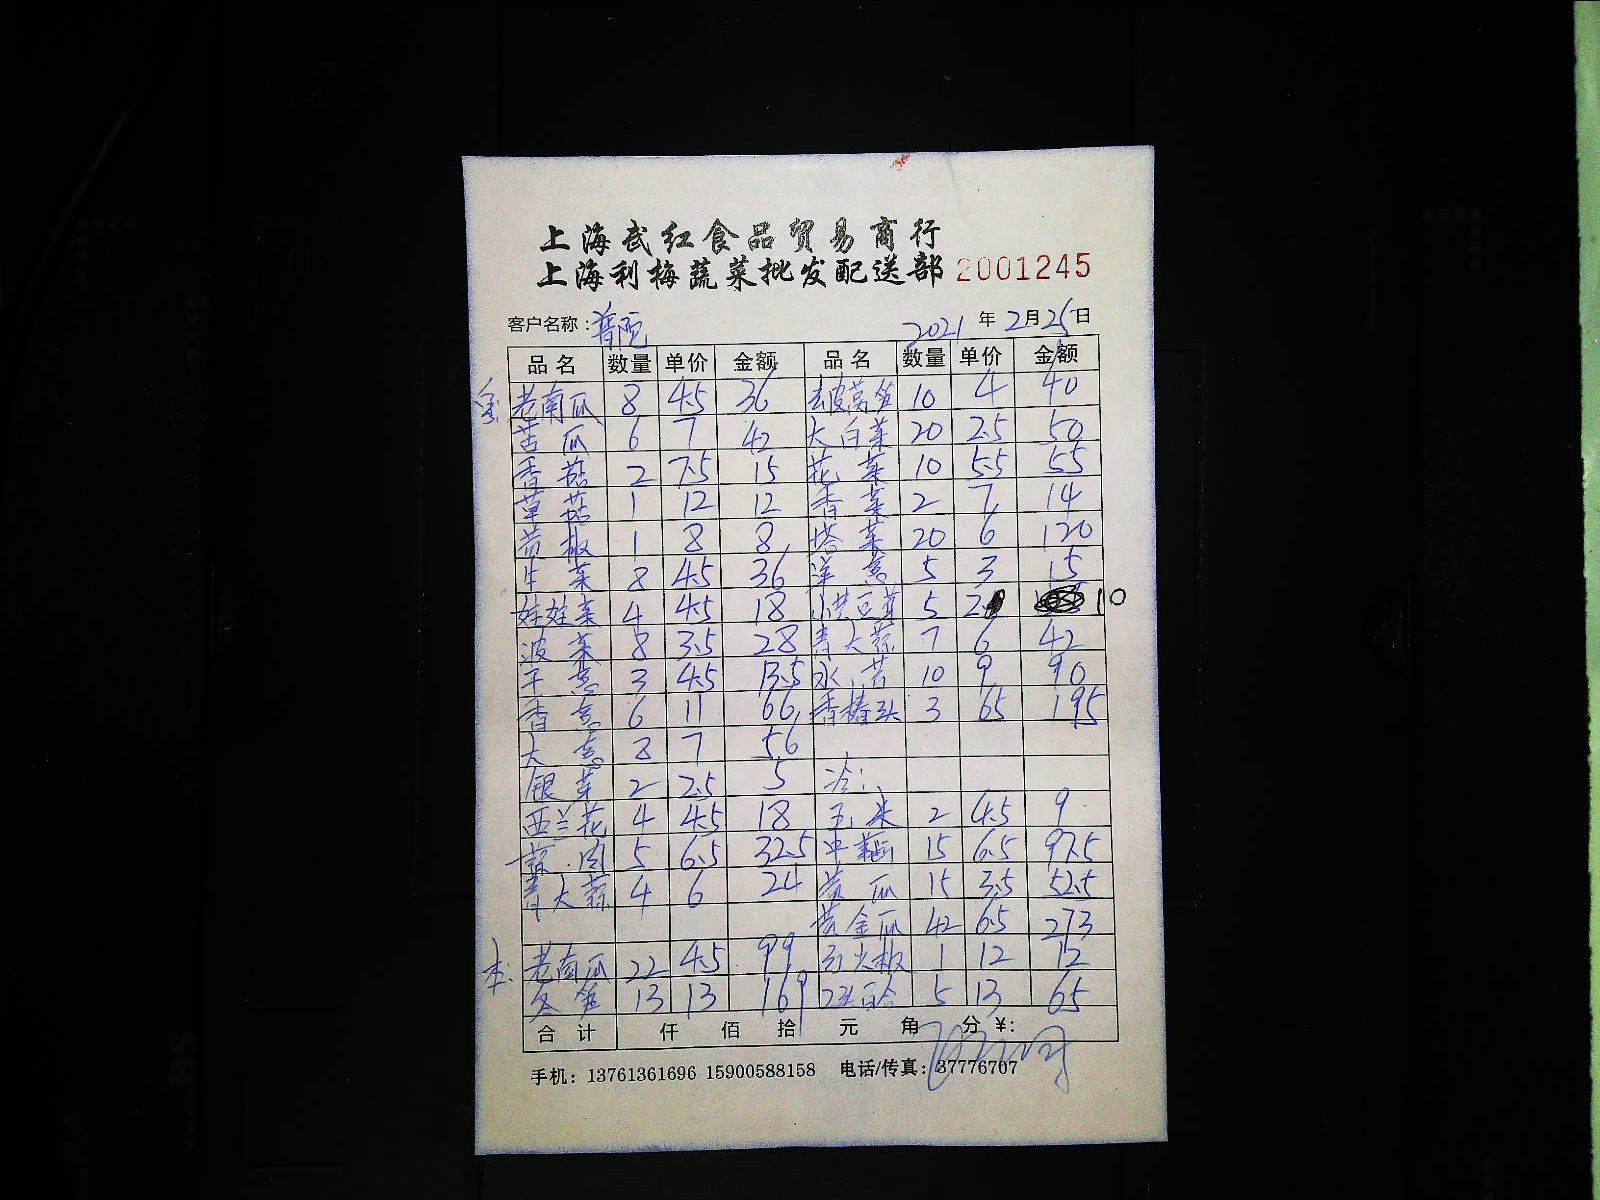 上海武红食品贸易商行
上海利梅蔬菜批发配送部 2001245
客户名称：普陀 2021 年 2 月 25 日
品名 数量 单价 金额 品名 数量 单价 金额
老南瓜 8 4.5 36 去皮莴笋 10 4 40
苦瓜 6 7 42 大白菜 20 2.5 50
香菇 2 7.5 15 花菜 10 5.5 55
草菇 1 12 12 香菜 2 7 14
黄椒 1 8 8 塔菜 20 6 120
生菜 8 4.5 36 洋葱 5 3 15
娃娃菜 4 4.5 18 小洪豆芽 5 2 10
波菜 8 3.5 28 青大蒜 7 6 42
干葱 3 4.5 13.5 水 10 9 90
香葱 6 11 66 香椿头 3 65 195
大葱 8 7 56
银芽 2 2.5 5 冷：
西兰花 4 4.5 18 玉米 2 4.5 9
蒜肉 5 6.5 32.5 中藕 15 6.5 97.5
青大蒜 4 6 24 黄瓜 15 3.5 52.5
黄金瓜 42 6.5 273
本： 老南瓜 22 4.5 99 尖椒 1 12 12
冬笋 13 13 169 百合 5 13 65
合计 仟 佰 拾 元 角 分 ¥:
手机：13761361696 15900588158 电话/传真：37776707